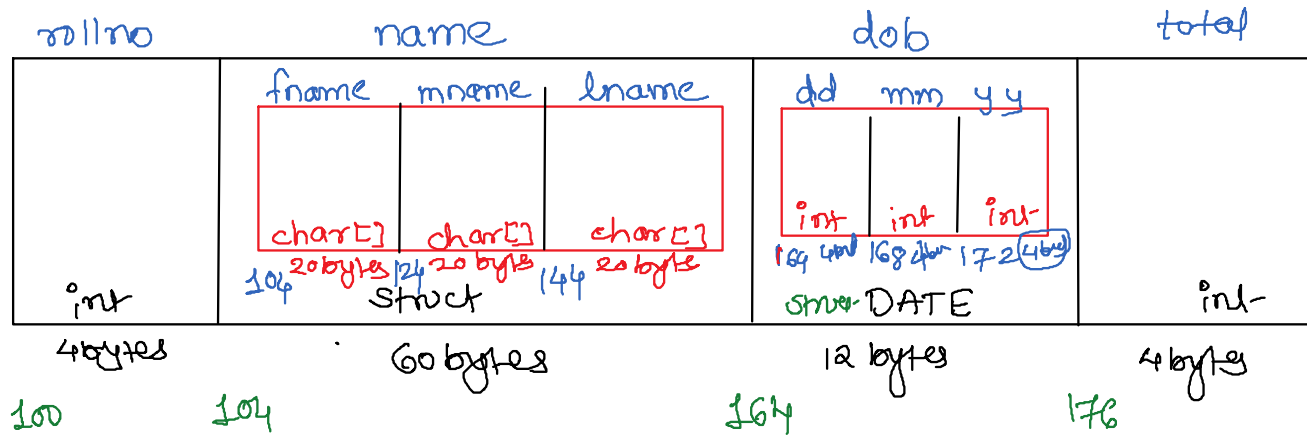 rollno name dob total
fname mname lname dd mm yy
char[] char[] char[] int int int
104 20bytes 124 20 bytes 144 20 bytes 164 168 172
int struct DATE int
4bytes 60 bytes 12 bytes 4 bytes
100 104 164 176